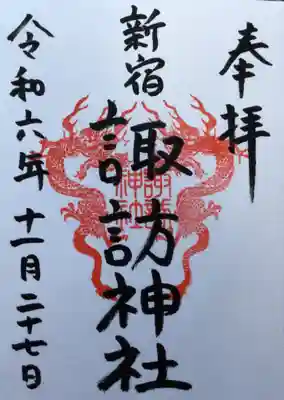 奉拝
新宿
諏訪神社
令和六年 十一月二十七日
諏訪神社